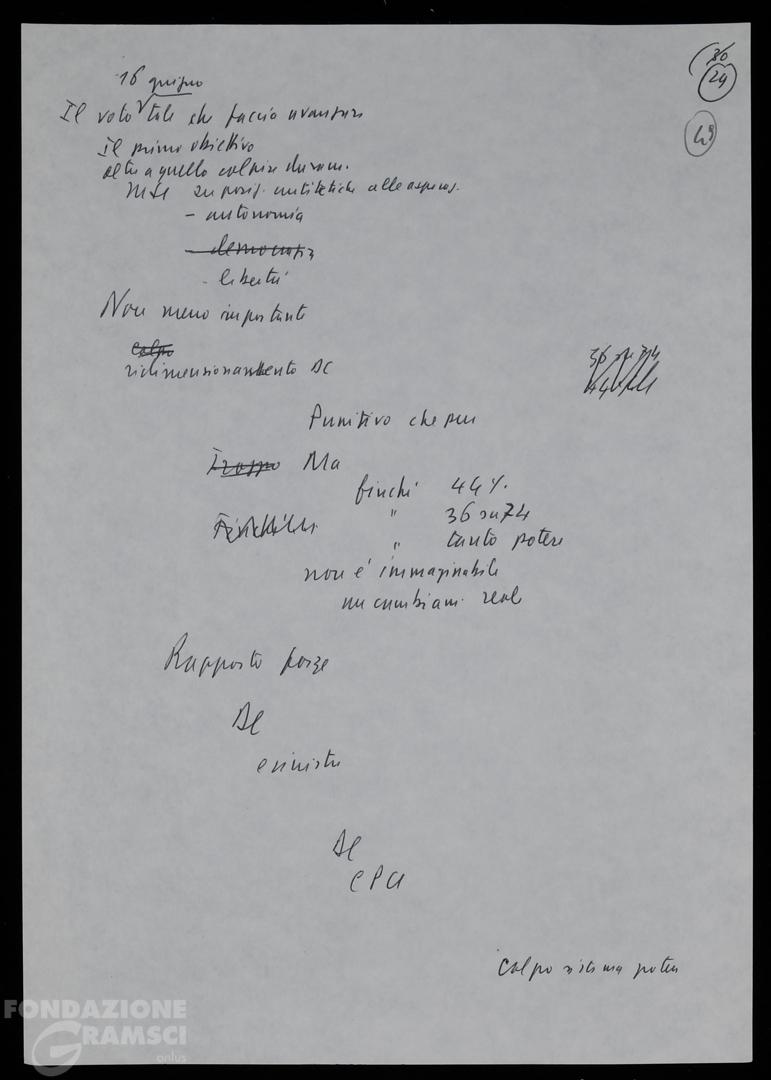 30
24
49
16 giugno
Il voto tale che faccia avanzare
Il primo obiettivo
oltre a quello colpire duram.
MSI su posiz. antitetiche alle aspiraz.
- autonomia
- democrazia
- libertà
Non meno importante
colpo
ridimensionamento DC
36 su 74
44
Punitivo che pur
Troppo Ma
finché 44%
" 36 su 74
" tanto potere
non è immaginabile
un cambiam. reale
Rapporto forze
DC
e sinistra
DC
e PCI
Colpo sistema potere
FONDAZIONE
GRAMSCI
onlus